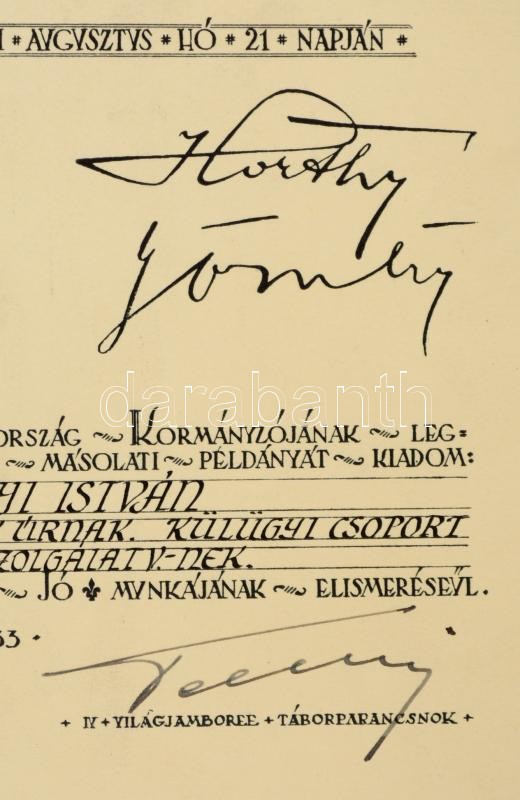 AVGVSZTVS * HÓ * 21 * NAPJÁN *
Horthy
Gömbös
darabanth
ORSZÁG ~ KORMÁNYZÓJÁNAK ~ LEG=
~ MÁSOLATI ~ PÉLDÁNYÁT ~ KIADOM:
AI ISTVÁN
ÚRNAK. KÜLÜGYI CSOPORT
ZOLGÁLATV.-NEK.
~ JÓ ⚜ MVNKÁJÁNAK ~ ELISMERÉSEÜL.
33 ·
Teleki
+ IV + VILÁGJAMBOREE + TÁBORPARANCSNOK +